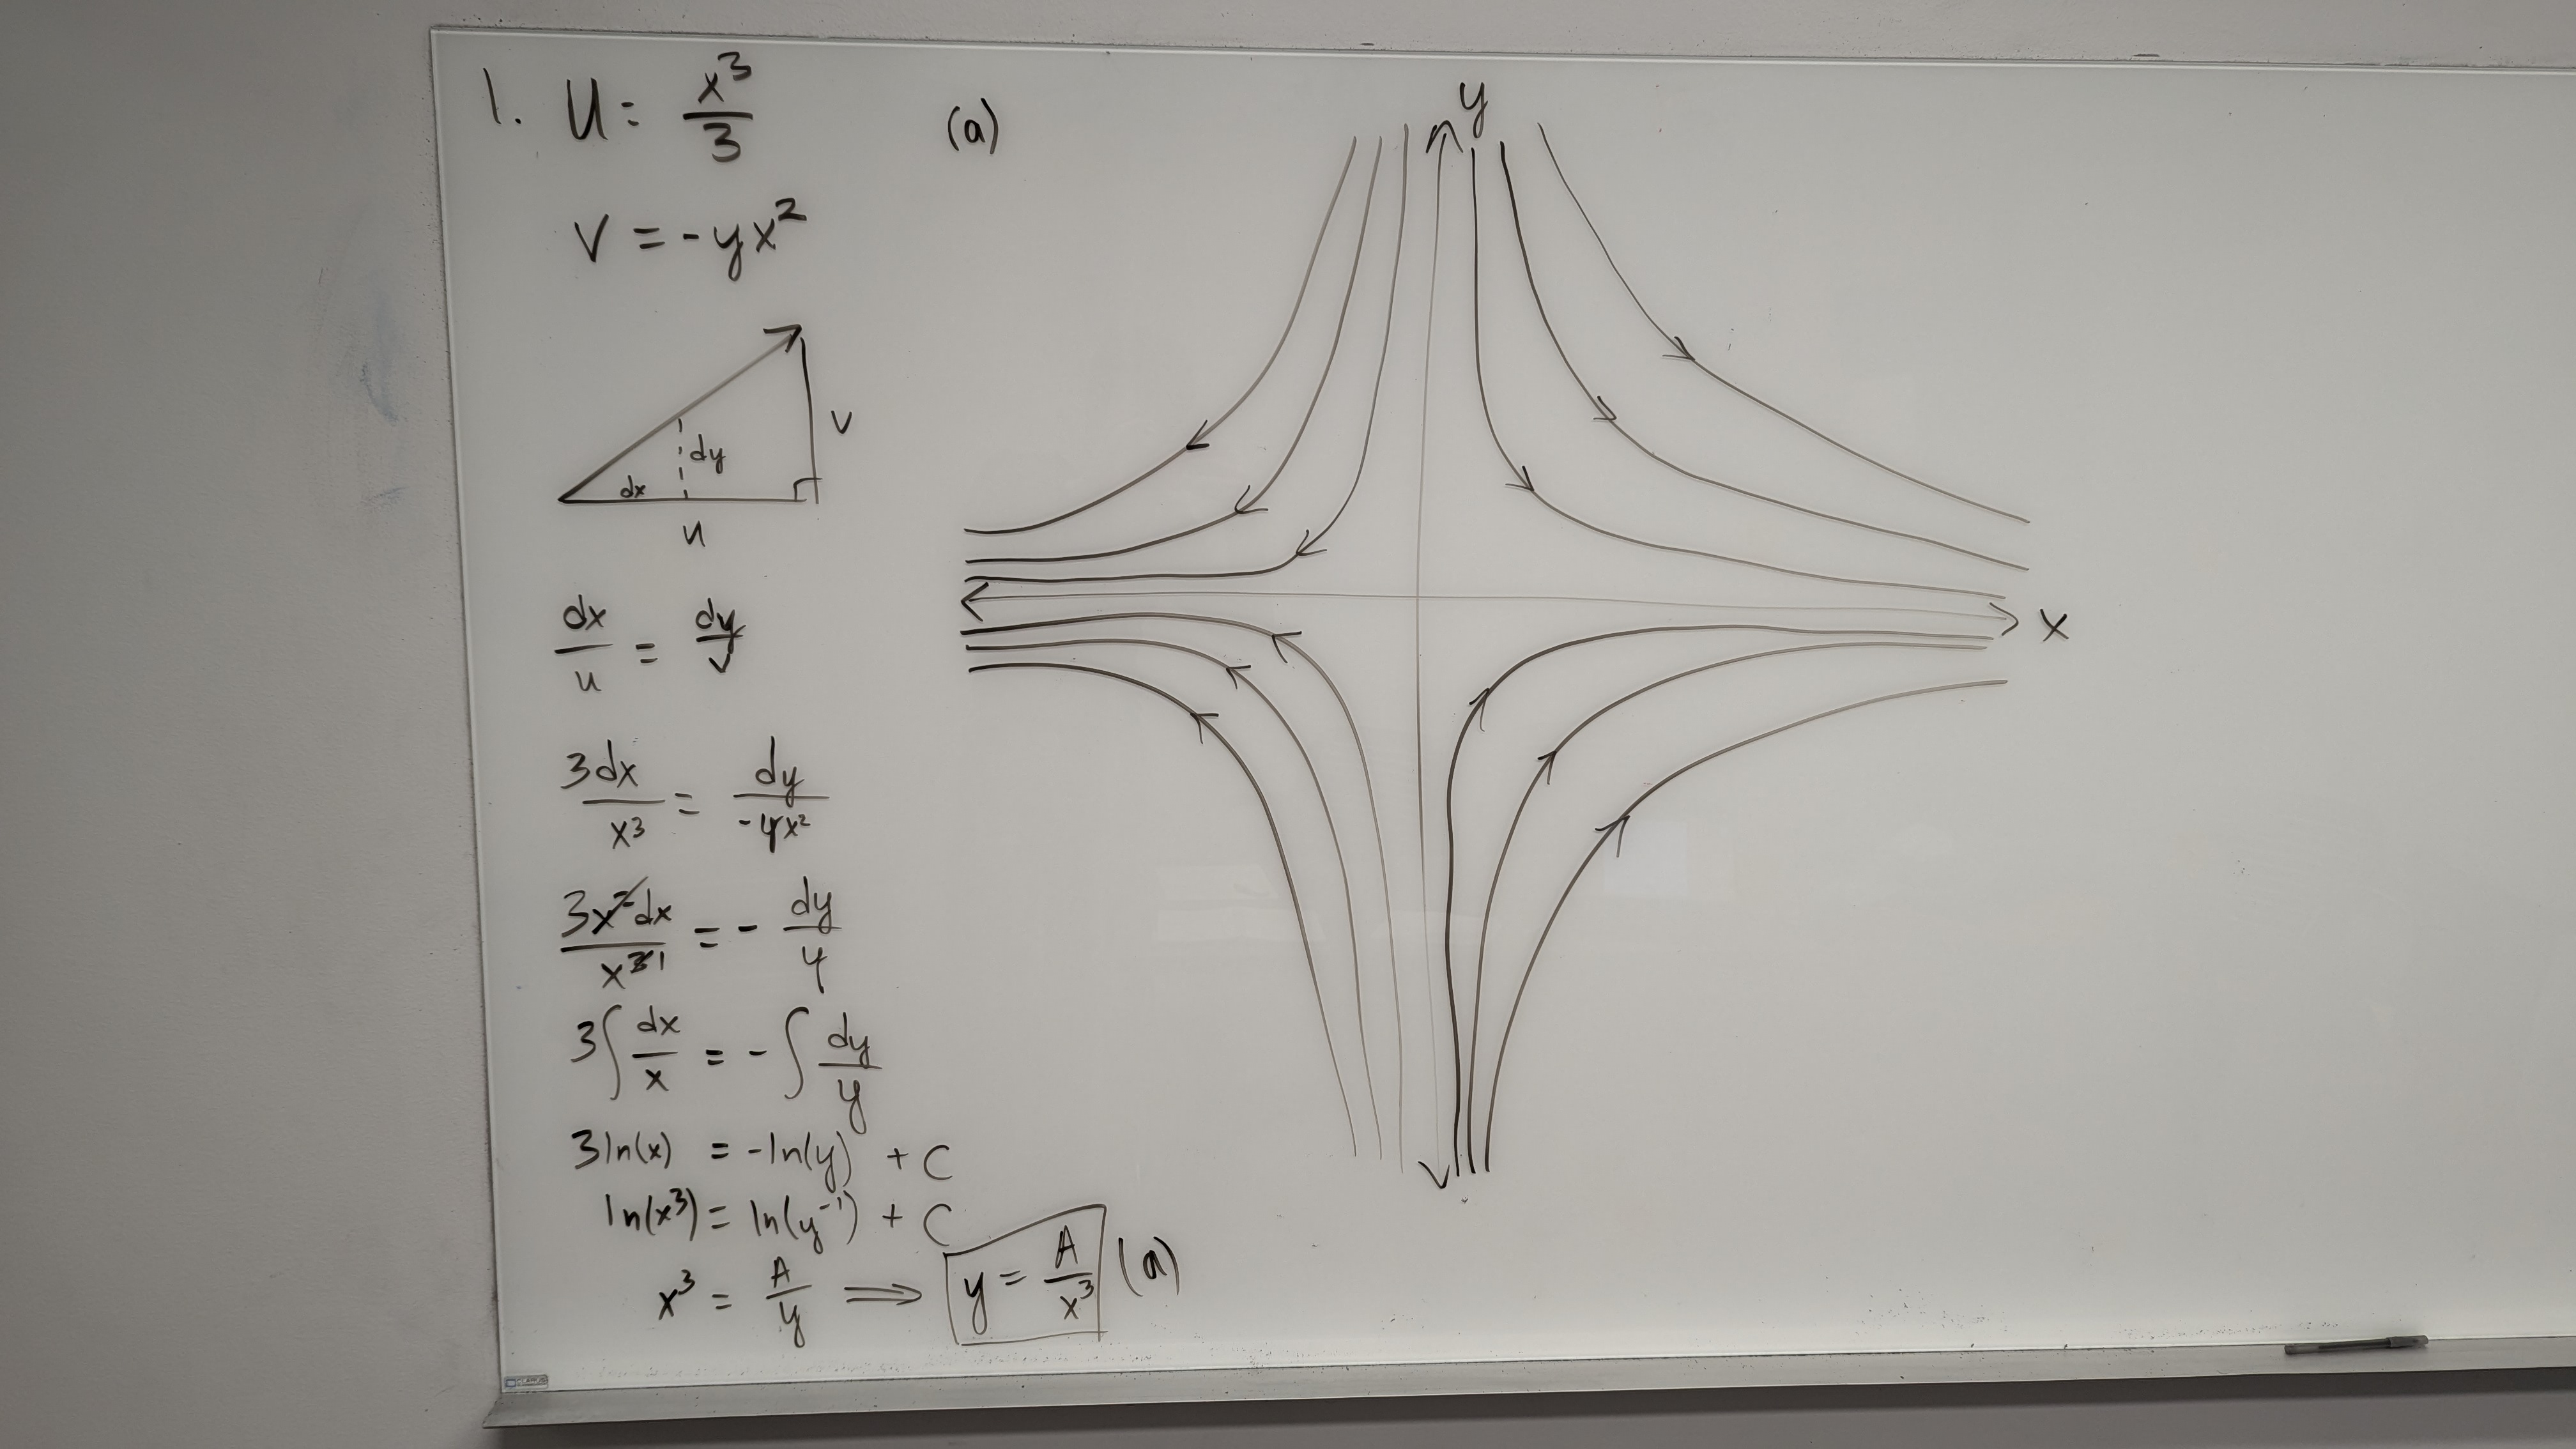 1. U = x³/3
(a)
V = -yx²
v
dy
dx
u
dx/u = dy/v
3dx/x³ = dy/-yx²
3x²dx/x³¹ = - dy/y
3∫dx/x = -∫dy/y
3ln(x) = -ln(y) + C
ln(x³) = ln(y⁻¹) + C
x³ = A/y ⟹ y = A/x³ (a)
y
x